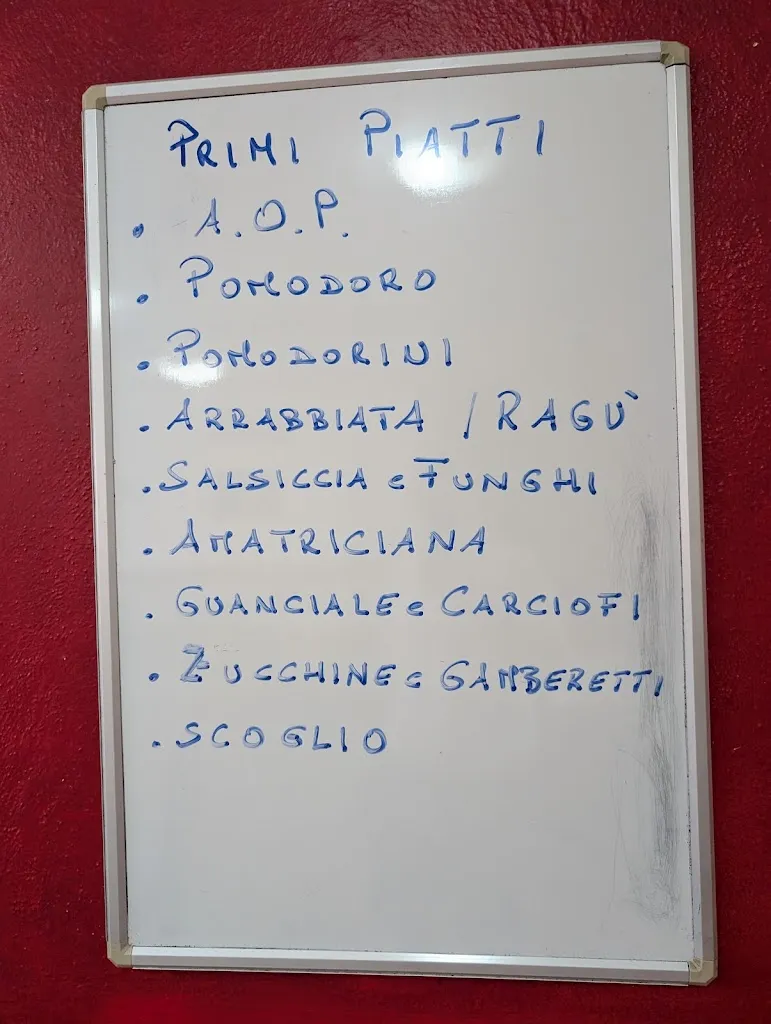 PRIMI PIATTI
• A.O.P.
• POMODORO
• POMODORINI
• ARRABBIATA / RAGU`
• SALSICCIA e FUNGHI
• AMATRICIANA
• GUANCIALE e CARCIOFI
• ZUCCHINE e GAMBERETTI
• SCOGLIO